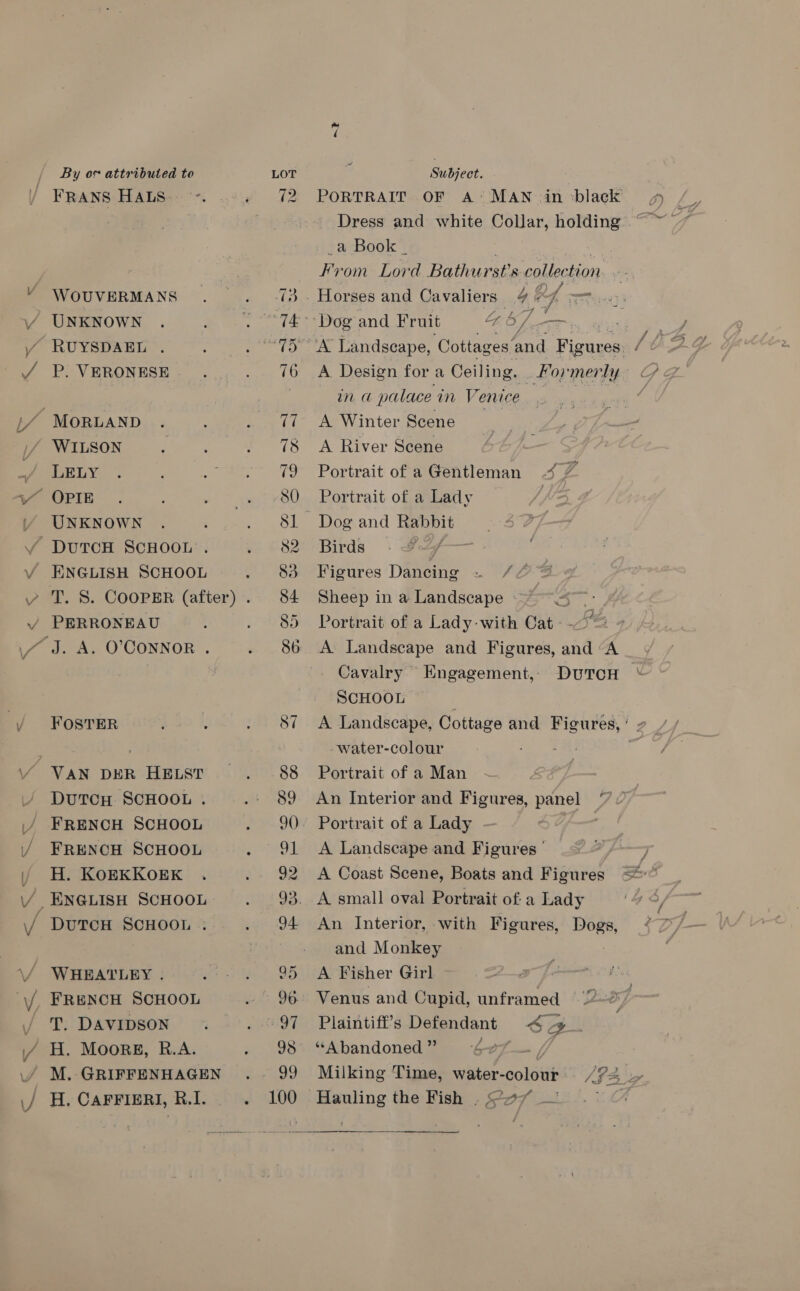 7
By or attributed to LOT Subject.
FRANS HALS . . 72 PORTRAIT OF A MAN in black
Dress and white Collar, holding
a Book
From Lord Bathurst's collection
WOUVERMANS . . 73 Horses and Cavaliers
UNKNOWN . . . 74 Dog and Fruit
RUYSDAEL . . . 75 A Landscape, Cottages and Figures
P. VERONESE . . 76 A Design for a Ceiling. Formerly
in a palace in Venice
MORLAND . . . 77 A Winter Scene
WILSON . . . 78 A River Scene
LELY . . . 79 Portrait of a Gentleman
OPIE . . . 80 Portrait of a Lady
UNKNOWN . . . 81 Dog and Rabbit
DUTCH SCHOOL . . 82 Birds
ENGLISH SCHOOL . 83 Figures Dancing
T. S. COOPER (after) . 84 Sheep in a Landscape
PERRONEAU . . 85 Portrait of a Lady with Cat
J. A. O'CONNOR . . 86 A Landscape and Figures, and A
Cavalry Engagement, DUTCH
SCHOOL
FOSTER . . . 87 A Landscape, Cottage and Figures,
water-colour
VAN DER HELST . . 88 Portrait of a Man
DUTCH SCHOOL . . 89 An Interior and Figures, panel
FRENCH SCHOOL . 90 Portrait of a Lady
FRENCH SCHOOL . 91 A Landscape and Figures
H. KOEKKOEK . . 92 A Coast Scene, Boats and Figures
ENGLISH SCHOOL . 93 A small oval Portrait of a Lady
DUTCH SCHOOL . . 94 An Interior, with Figures, Dogs,
and Monkey
WHEATLEY . . . 95 A Fisher Girl
FRENCH SCHOOL . 96 Venus and Cupid, unframed
T. DAVIDSON . . 97 Plaintiff's Defendant
H. MOORE, R.A. . 98 "Abandoned"
M. GRIFFENHAGEN . 99 Milking Time, water-colour
H. CAFFIERI, R.I. . 100 Hauling the Fish